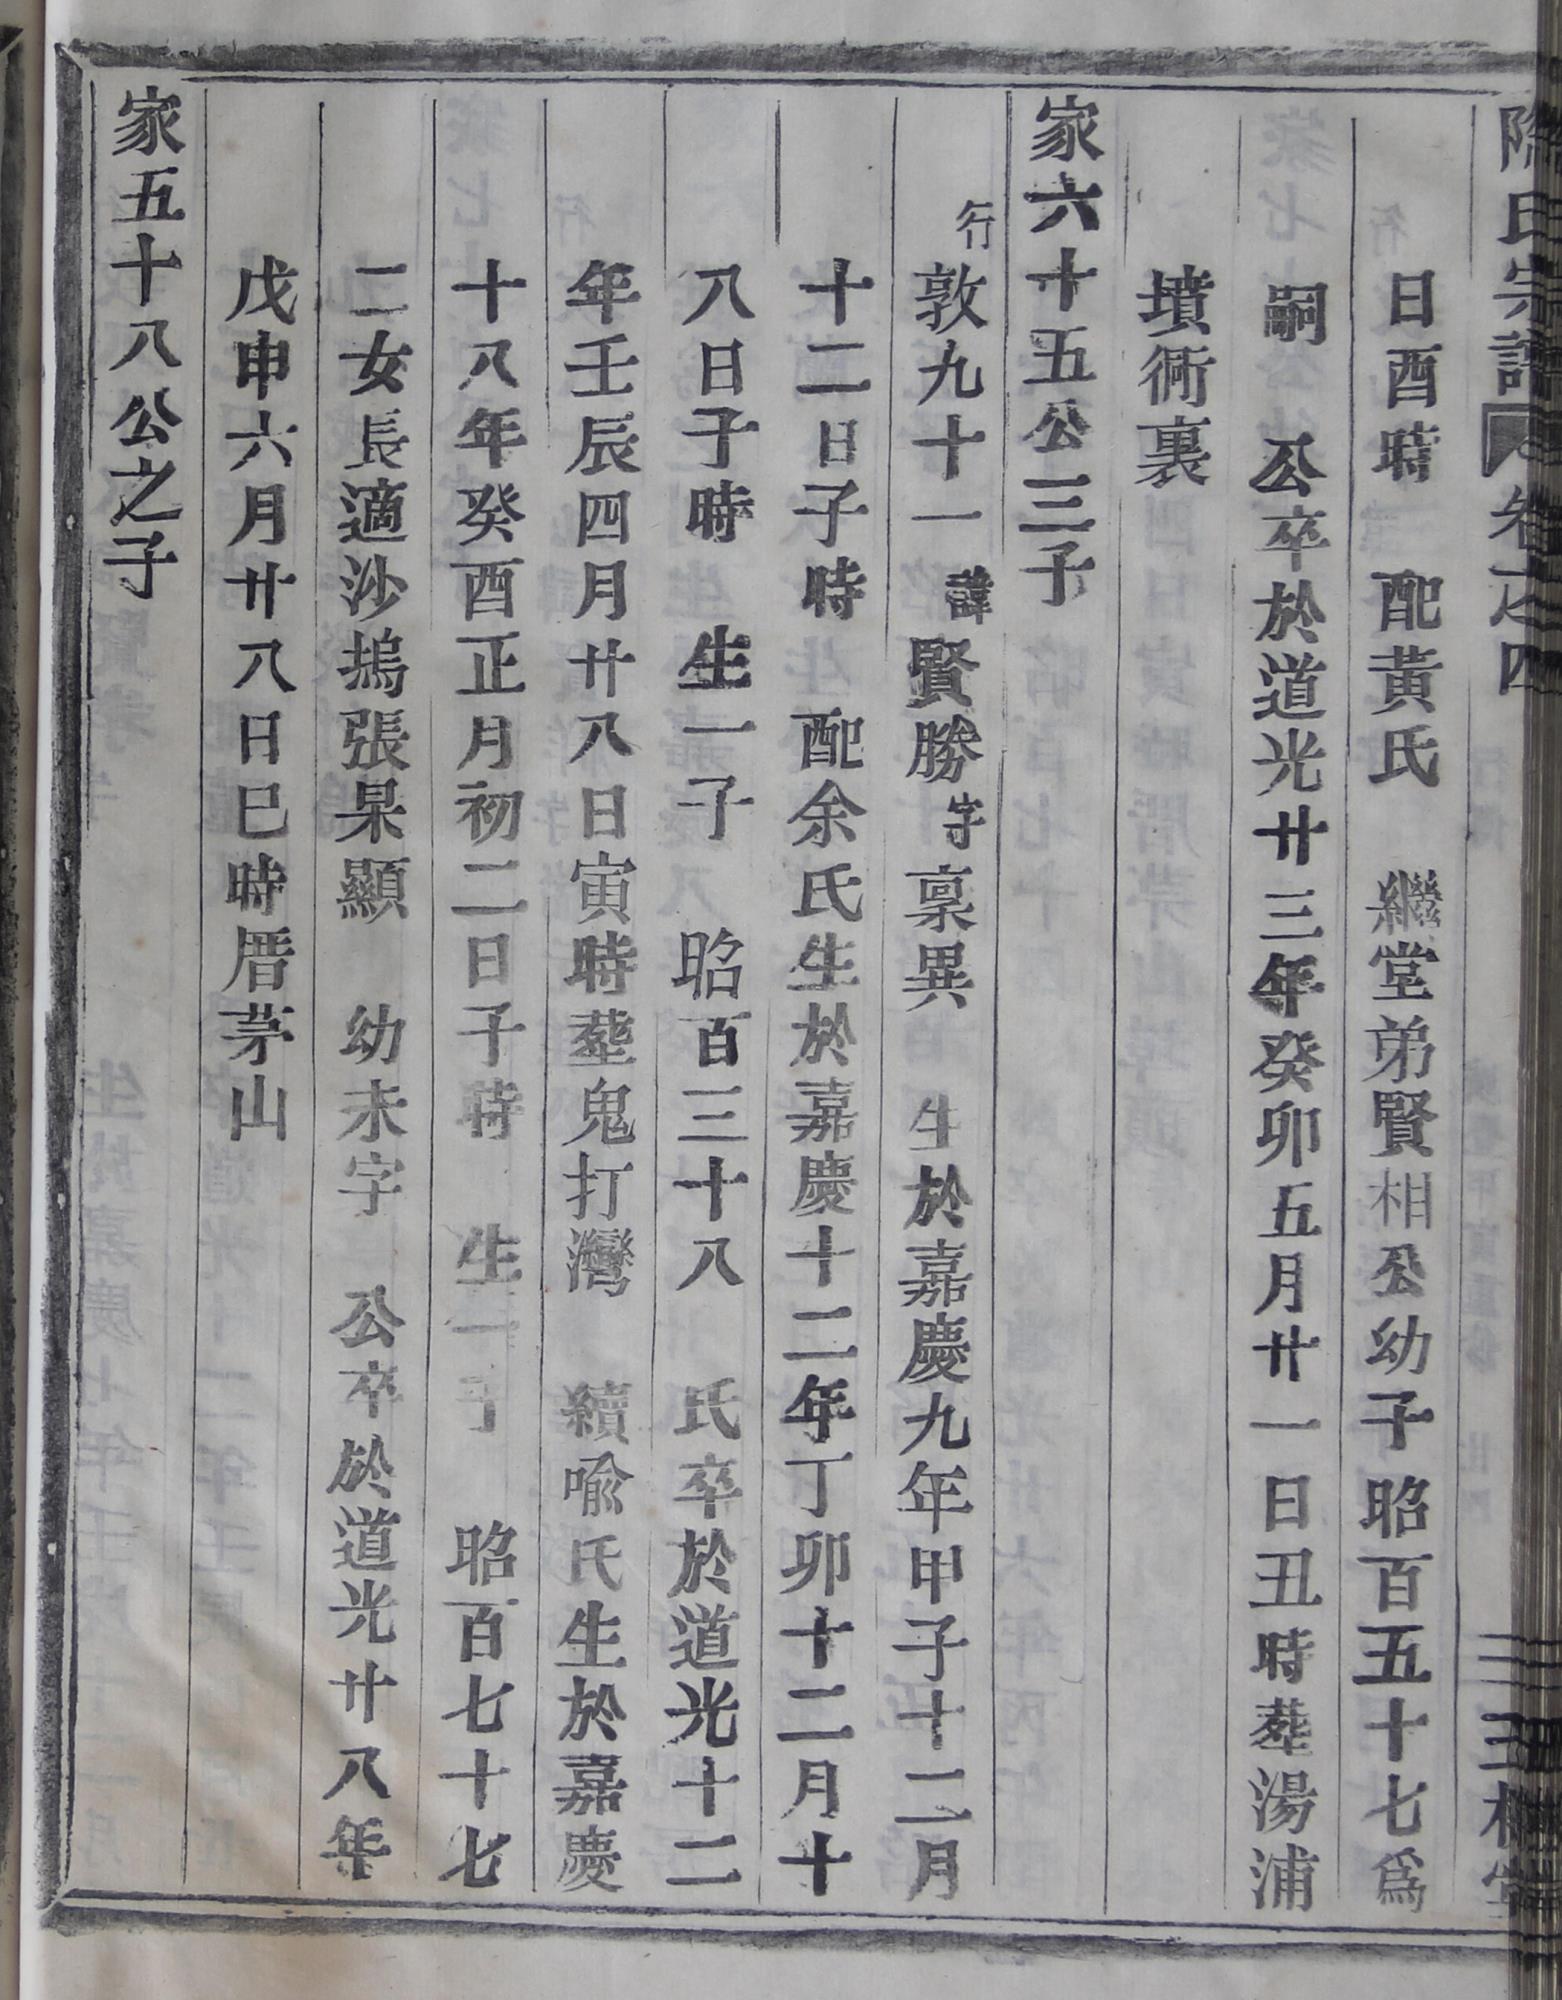 氏宗譜 卷之四 三
日酉時 配黃氏 繼堂弟賢相公幼子昭百五十七爲
嗣 公卒於道光廿三年癸卯五月廿一日丑時塟湯浦
墳衕裏
家六十五公三子
行敦九十一諱賢勝字稟異 生於嘉慶九年甲子十二月
十二日子時 配余氏生於嘉慶十二年丁卯十二月十
八日子時 生一子 昭百三十八 氏卒於道光十二
年壬辰四月廿八日寅時塟鬼打灣 續喻氏生於嘉慶
十八年癸酉正月初二日子時 生一子 昭百七十七
二女長適沙塢張杲顯 幼未字 公卒於道光廿八年
戊申六月廿八日巳時厝茅山
家五十八公之子